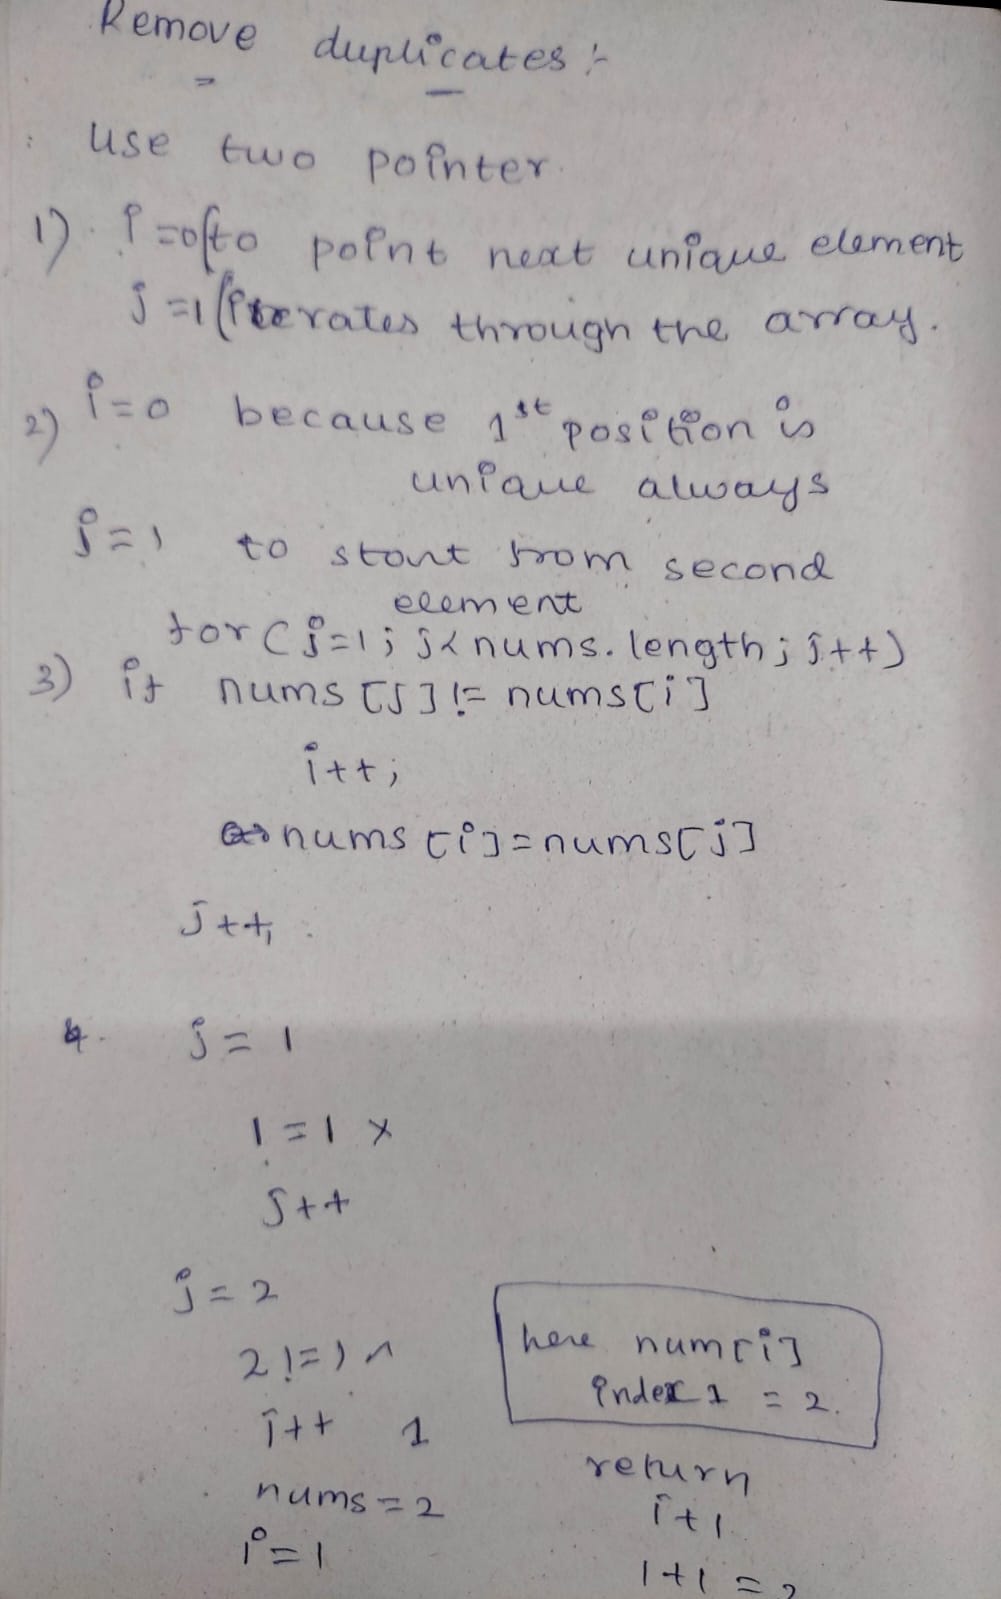 Remove duplicates :-
Use two pointer.
1) i=0 (to point next unique element
j=1 (iterates through the array.
2) i=0 because 1st position is
unique always
j=1 to start from second
element
for (j=1; j<nums.length; j++)
3) if nums[j] != nums[i]
i++;
nums[i]=nums[j]
j++;
4. j=1
1=1 x
j++
j=2
2!=1
i++ 1
nums=2
i=1
here num[i]
index 1 = 2.
return
i+1
1+1=2